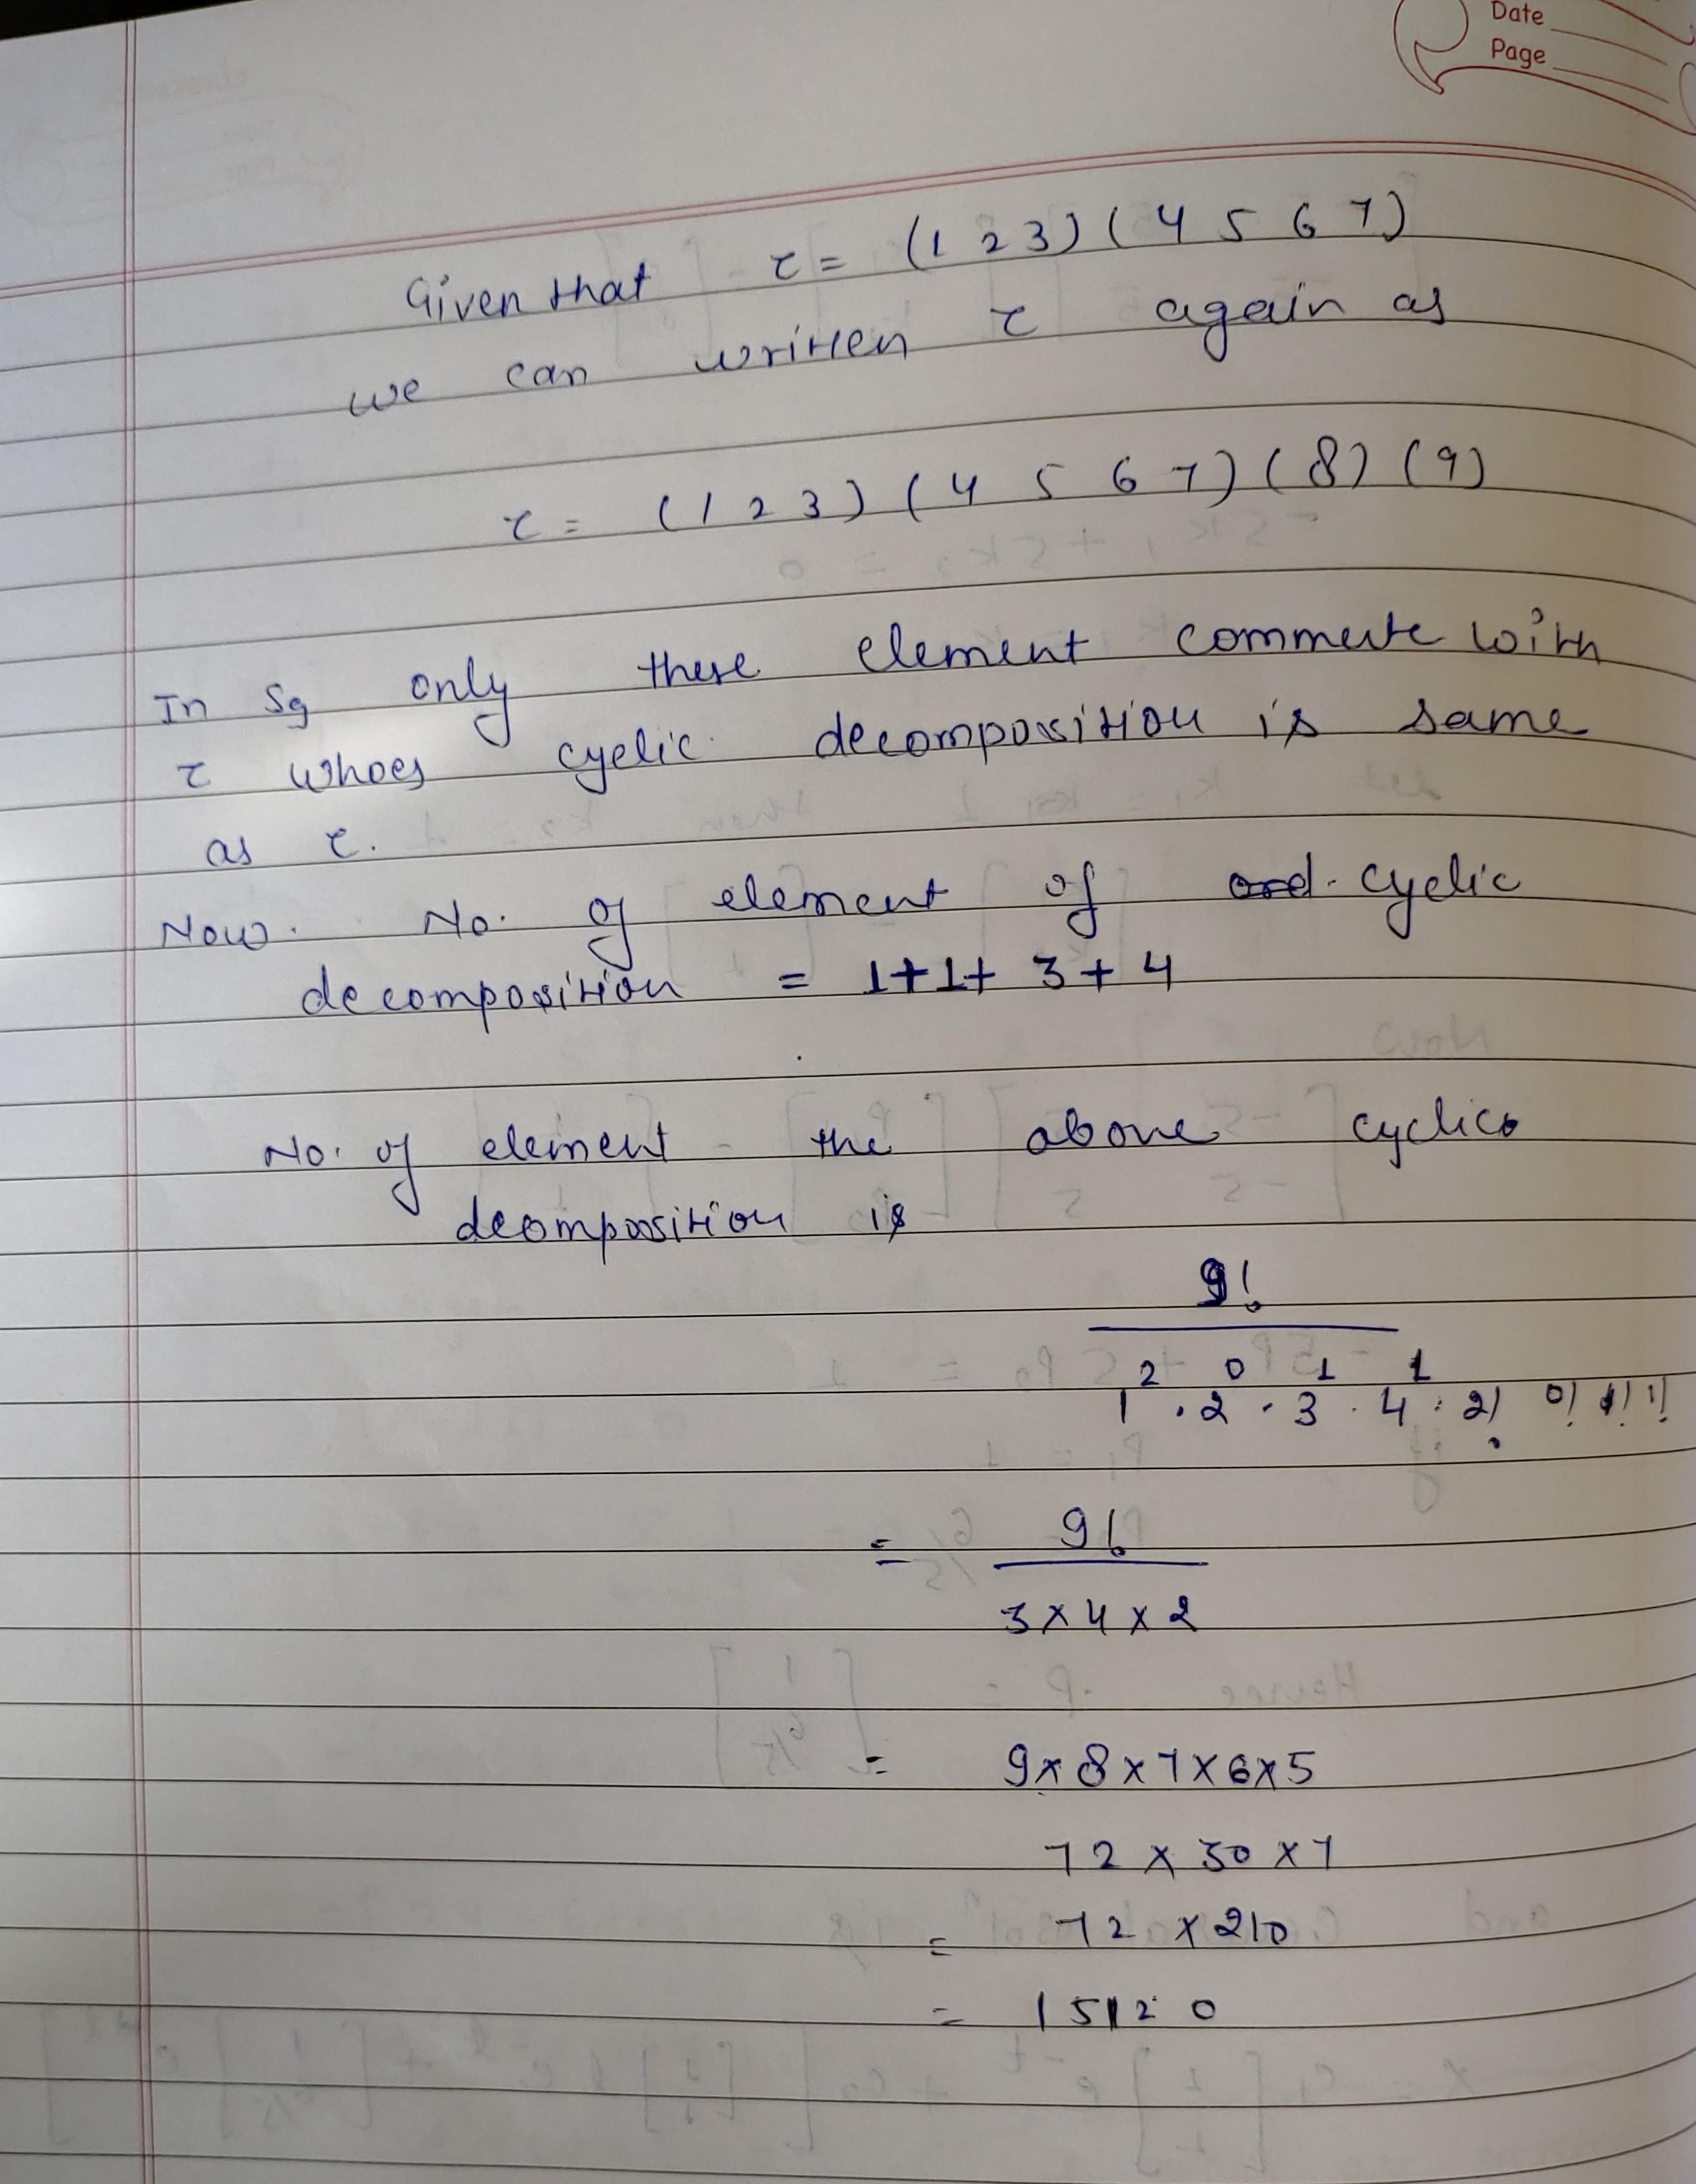 Date
Page
Given that τ = (1 2 3) (4 5 6 7)
we can written τ again as
τ = (1 2 3) (4 5 6 7) (8) (9)
In S9 only these element commute with
τ whoes cyclic decomposition is same
as τ.
Now. No. of element of cyclic
decomposition = 1+1+ 3+4
No. of element the above cyclic
decomposition is
9!
1^2 . 2^0 . 3^1 . 4^1 . 2! 0! 1! 1!
= 9!
3×4×2
= 9×8×7×6×5
72 × 30 ×7
= 72 ×210
= 15120